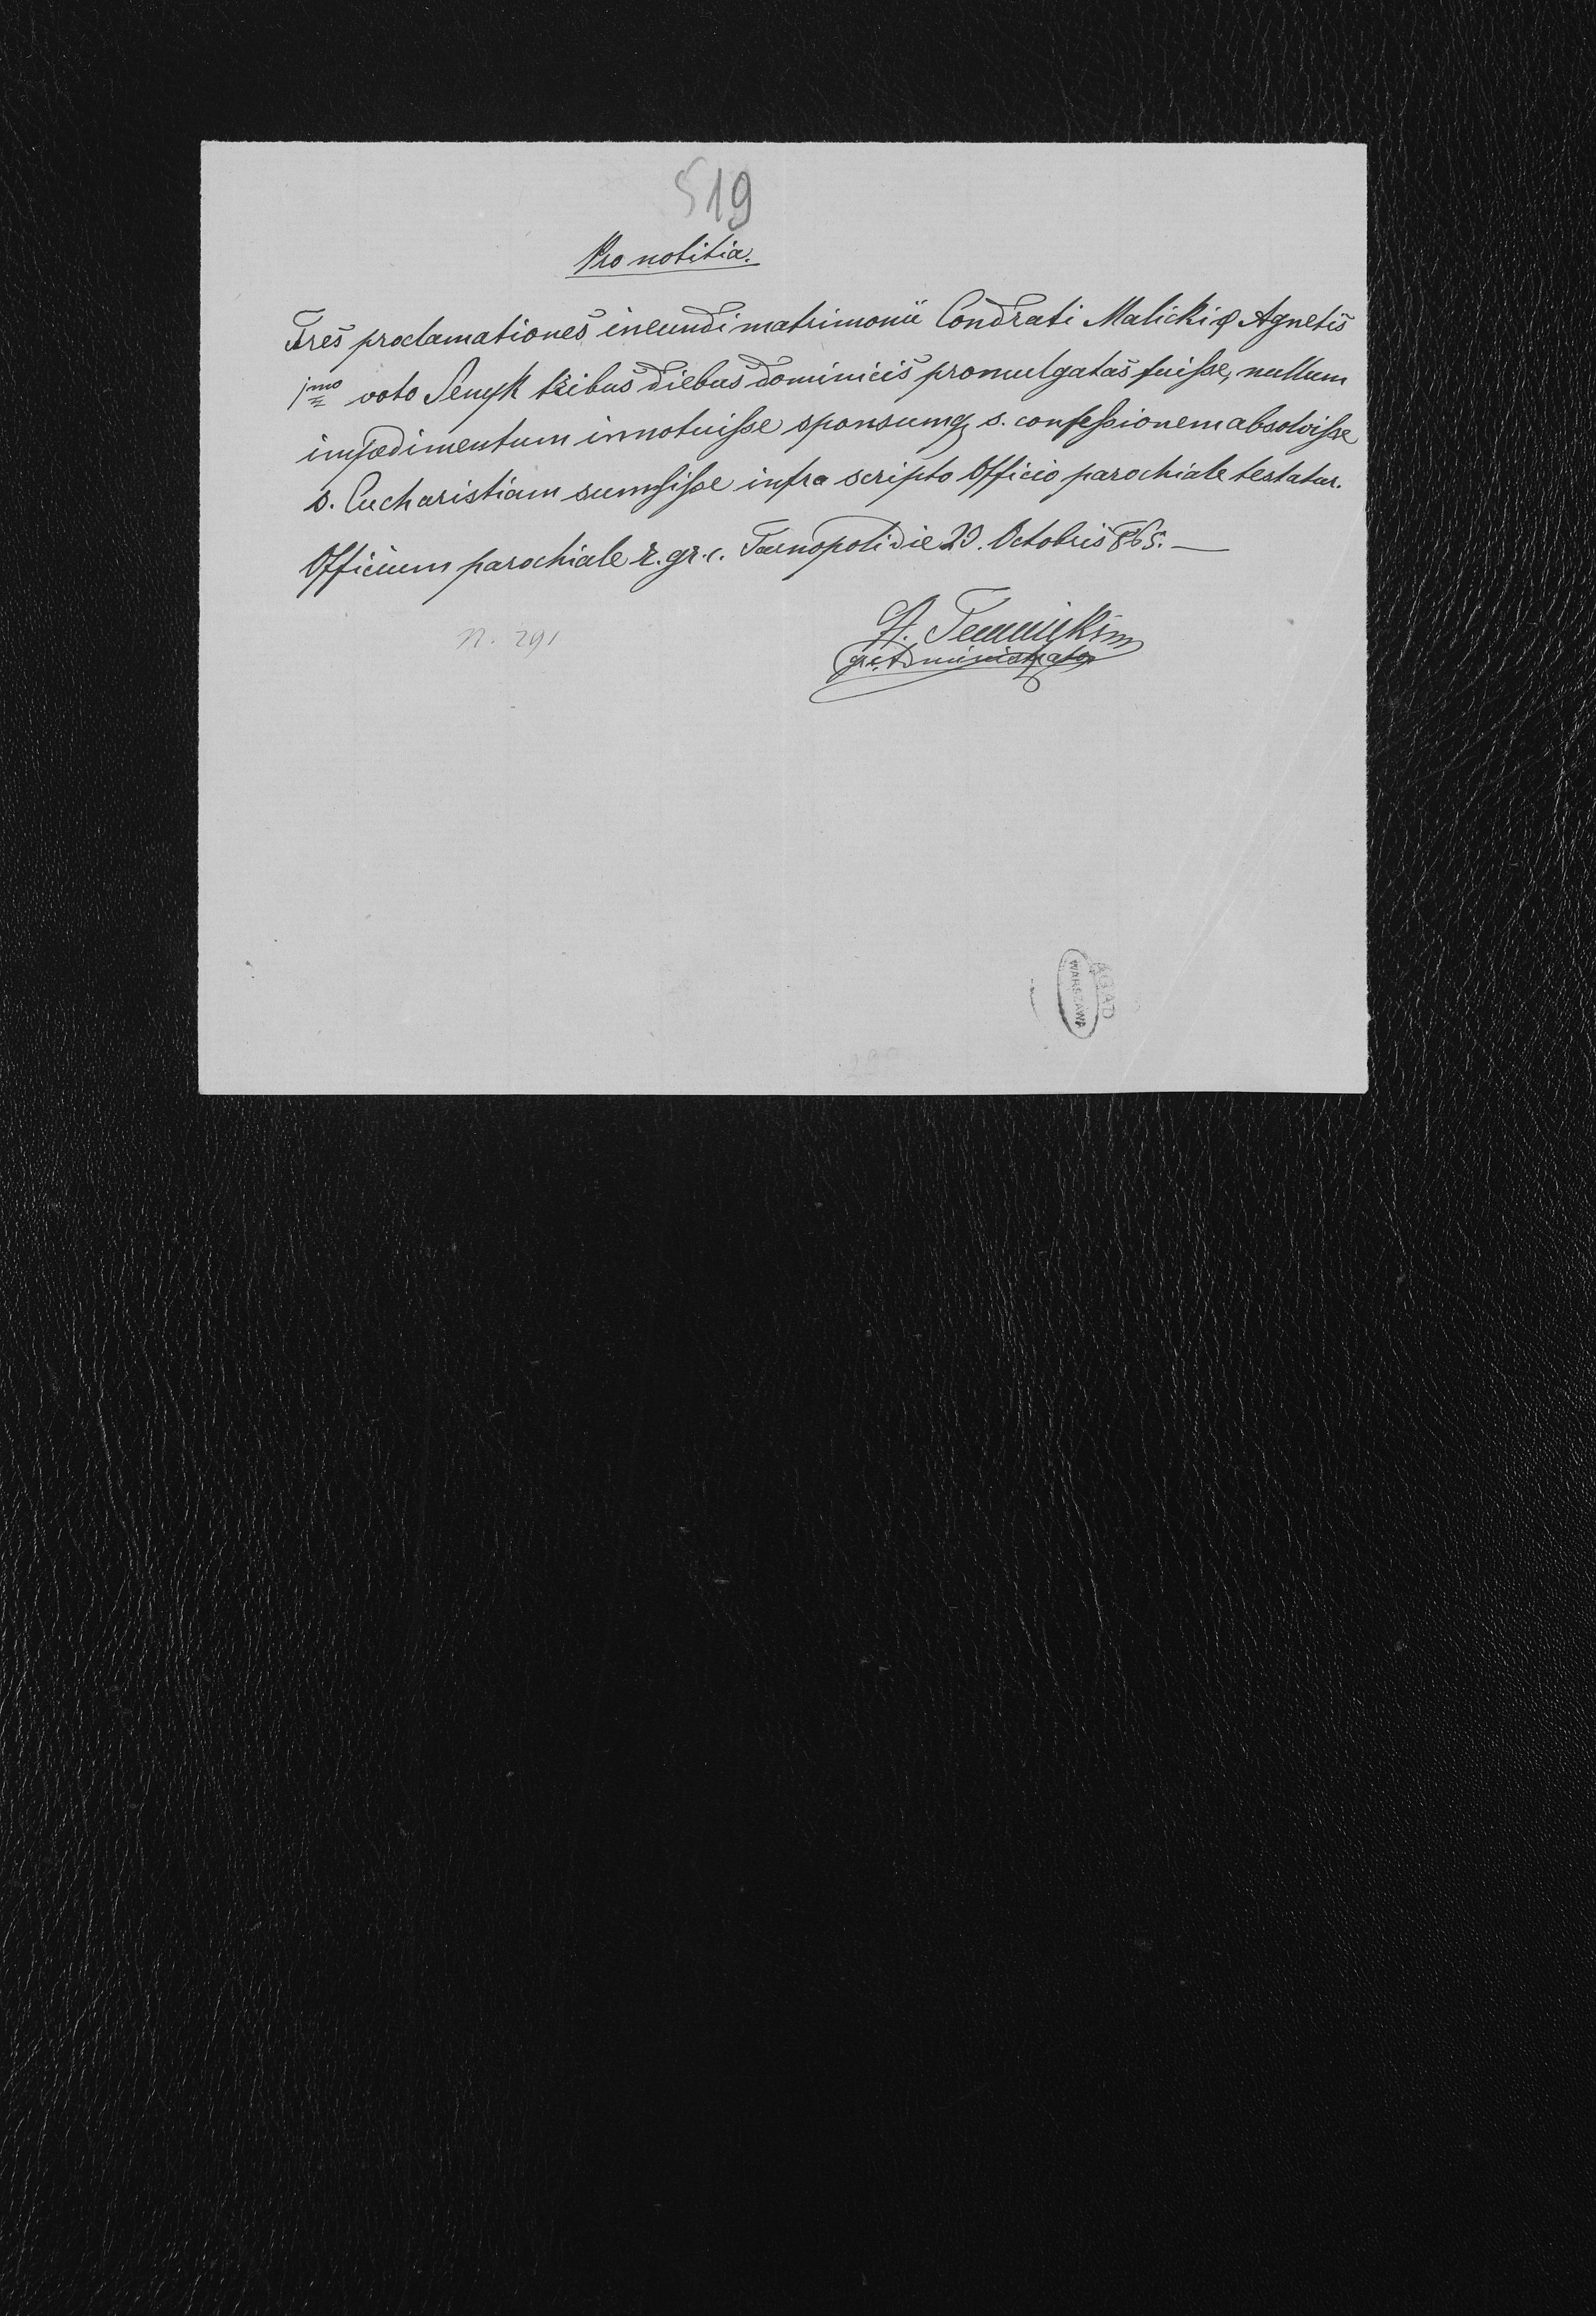 519
Pro notitia.
Tres proclamationes ineundi matrimonii Condrati Malicki & Agnetis
1mo voto Senyk tribus diebus dominicis promulgatas fuisse, nullum
impedimentum innotuisse sponsumq s. confessionem absolvisse
s. Eucharistiam sumsisse infra scripto Officio parochiale testatur.
Officium parochiale r. gr. c. Tarnopoli die 20. Octobris 865. —
N. 291
gr. c. Administrator
AGAD
WARSZAWA